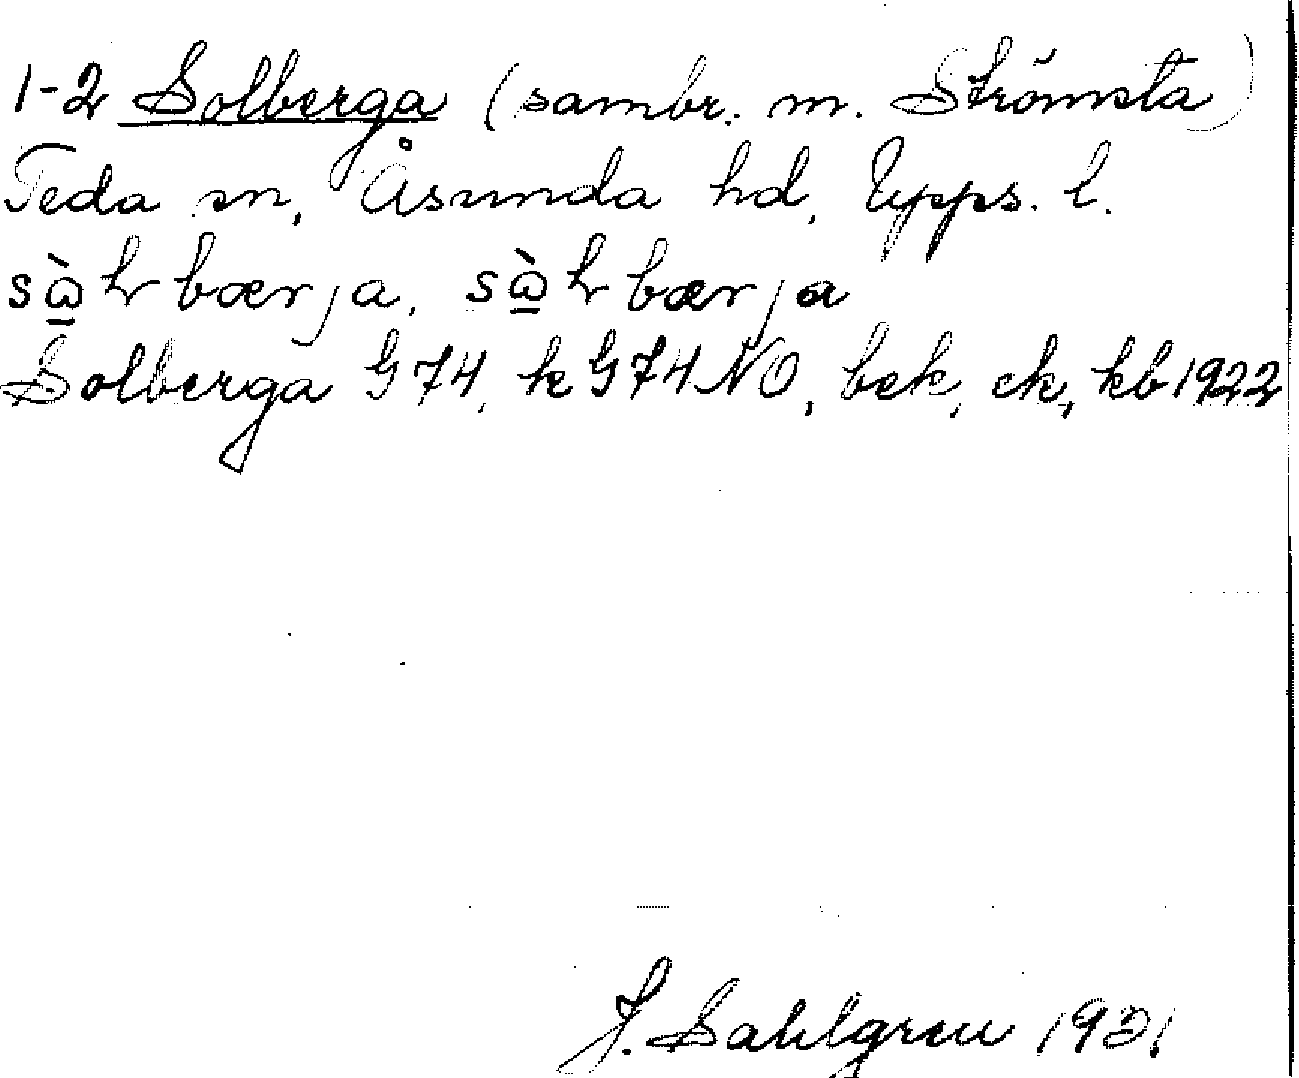 1-2 Solberga (sambr. m. Strömsta)
Teda sn, Åsunda hd, Upps. l.
Solberga G 74, k G 74 NO, bek, ek, kb 1922
J. Sahlgren 1931